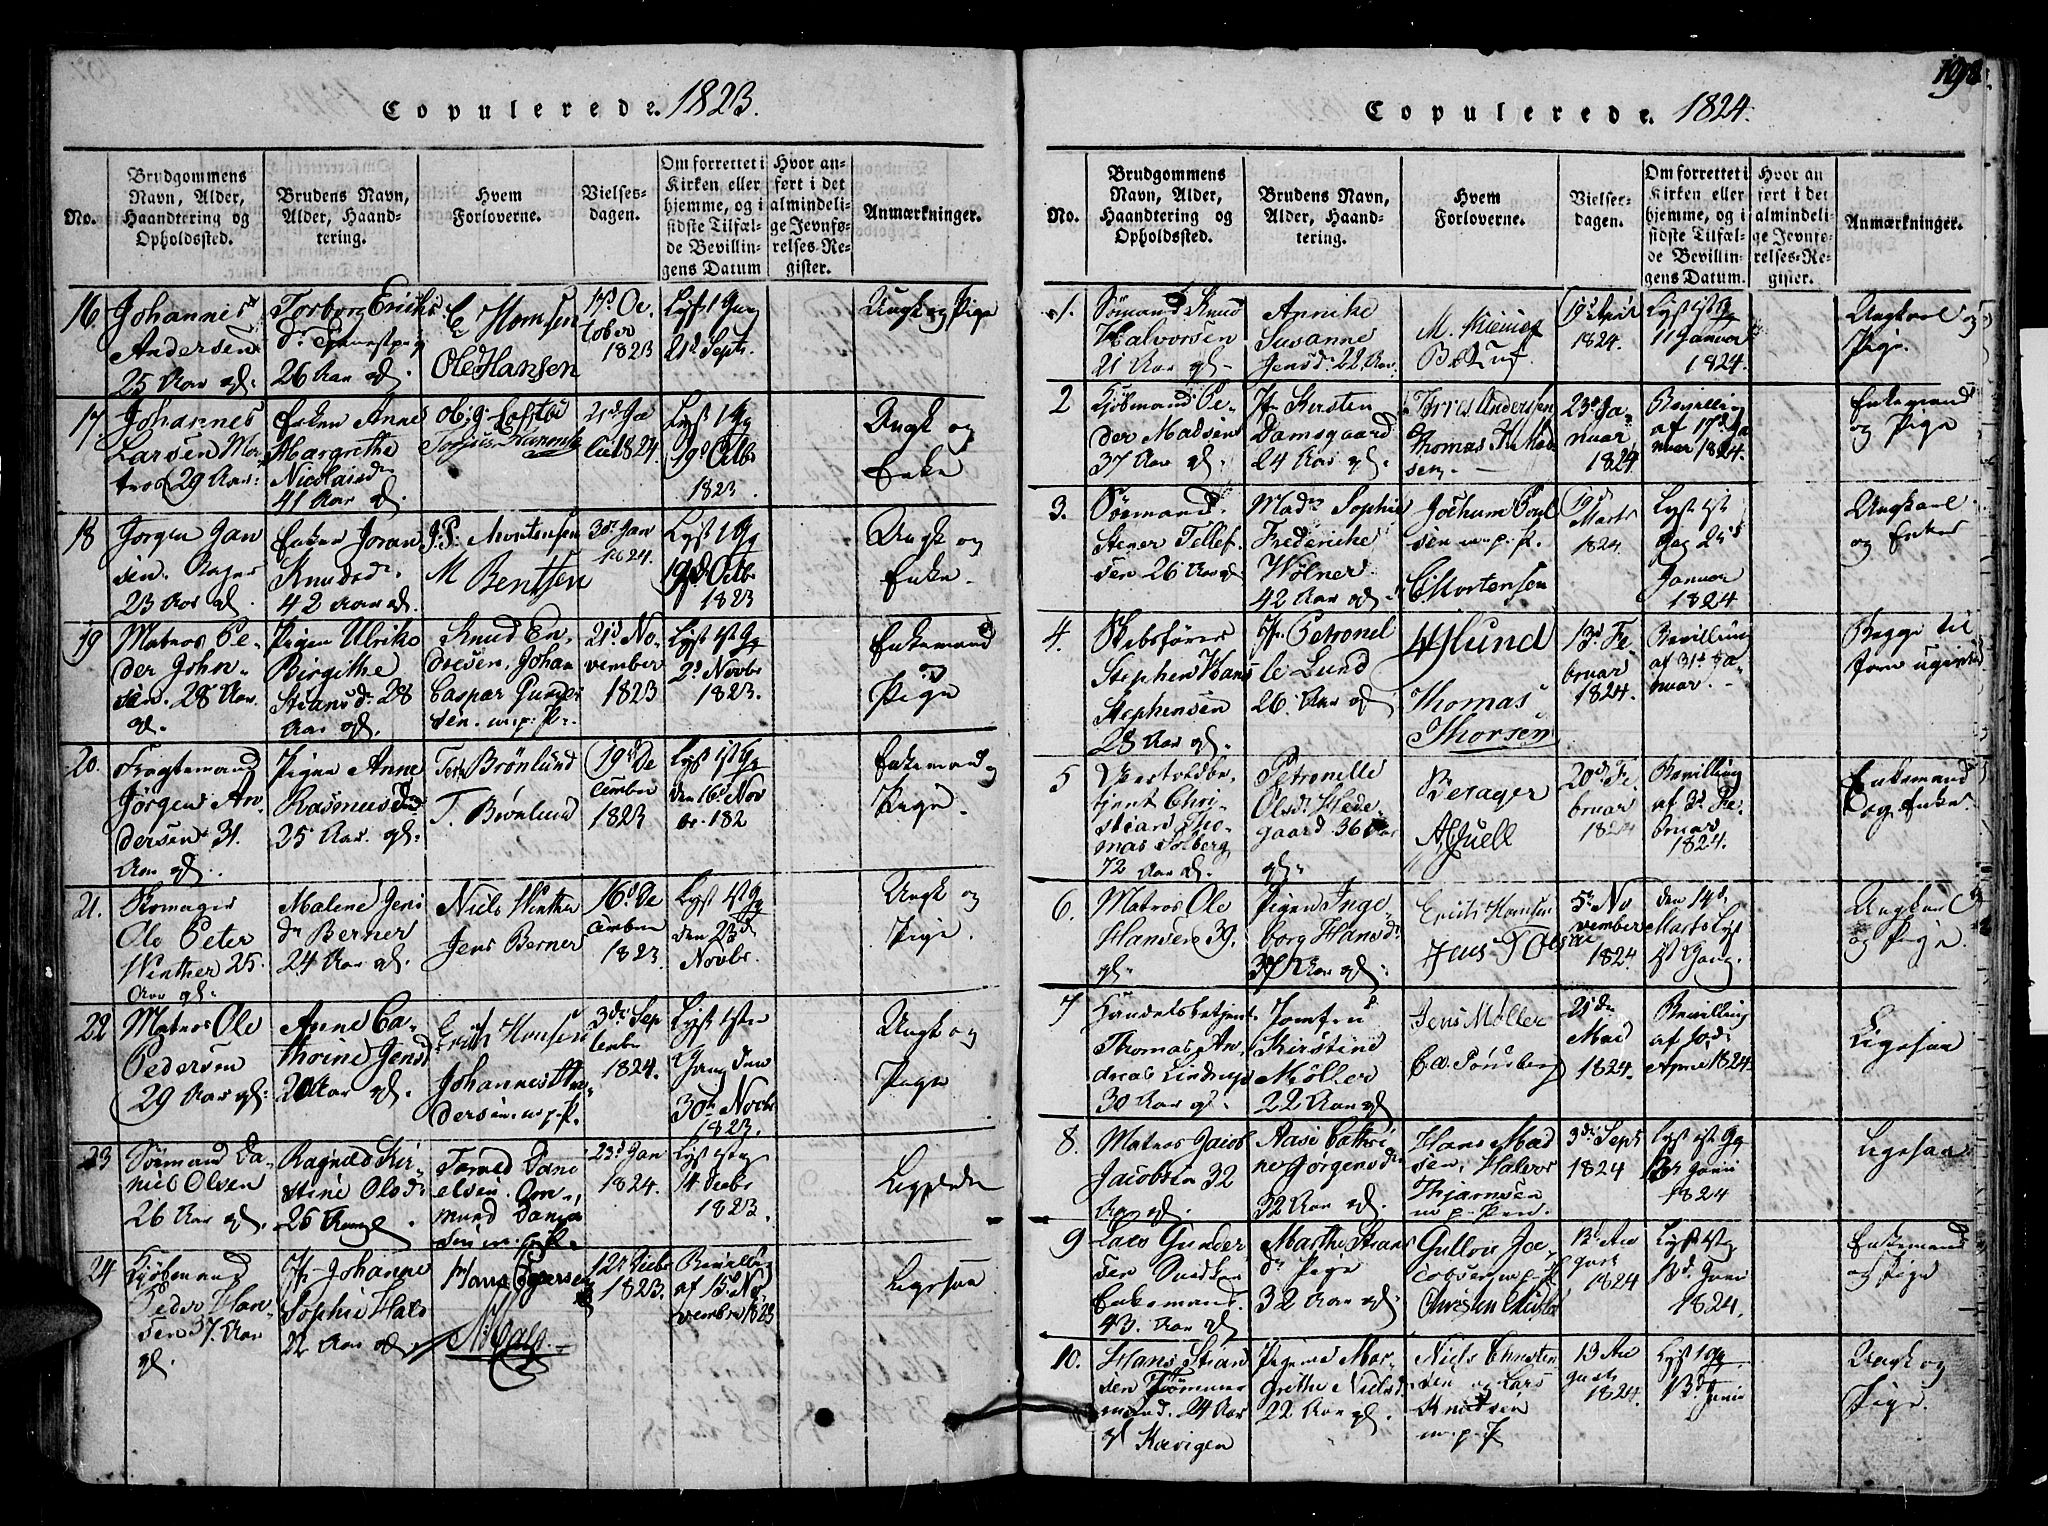 Copulerede. 1823.
No.
Brudgommens
Navn, Alder,
Haandtering og
Opholdssted.
Brudens Navn,
Alder, Haand-
tering.
Hvem
Forloverne.
Vielses-
dagen.
Om forrettet i
Kirken eller
hjemme, og i
sidste Tilfæl-
de Bevillin-
gens Datum
Hvor an-
ført i det
almindeli-
ge Jevnfø-
relses-Re-
gister.
Anmærkninger.
16.
Johannes
Andersen
25 Aar gl.
Torborg Eriks
26 Aar gl.
E Homsen
Ole Hansen
17d Oc
tober
1823
Lyst 1 Gang
21d Septr.
Ungk og Pige
17
Johannes
Larsen Ma-
tros 29 Aar
Enken Anne
Margrethe
Nicolaisdr
41 Aar gl.
1824.
Lyst 1 Gg
19d Octbr
1823
Ungk og
Enke
18
Jørgen Jan
sen.
23 Aar gl.
Enken Joran
Knudsdr.
42 Aar gl.
J. P. Mortensen
M Bentsen
30d Jan
1824.
Lyst 1 Gg
19d Octbr
1823
Ungk og
Enke.
19
Matros Pe-
der John-
sen. 28 Aar
gl.
Pigen Ulrike
Birgithe
Steansdr 28
Aar gl.
Knud En-
dresen, Johan
Caspar Gunder
sen. m. p. P.
21d No-
vember
1823
Lyst 1st Gg
2d Novbr
1823.
Enkemand
og
Pige
20.
Fragtemand
Jørgen An-
dersen 31.
Aar gl.
Pigen Anne
Rasmusdr
25 Aar. gl.
Brönlund
T. Brönlund
19d De
cember
1823
Lyst 1st Gg
den 16d Nov
br. 182
Enkemand og
Pige.
21.
Ole Peter
Winther 25.
Aar gl.
Malene Jens
dr Berner
24 Aar gl.
Niels Winther
Jens Berner
16d De
cember
1823.
Lyst 1st Gg
den 23d
Novbr.
Ungk og
Pige.
22
Matros Ole
Pedersen
29 Aar gl.
Anne Ca-
thrine Jensd
20 Aar gl.
Erich Homsen
Johannes An-
dersen m. p. P.
3d Sep
tember
1824.
Lyst 1ste
Gang den
30te Novbr
1823.
Ungk og
Pige
23
Sömand Da-
niel Olsen
26 Aar gl.
Ragnild Kir-
stine Olsdr
26 Aar gl.
Tarald Dani
elsen. Om-
mund Dania
sen m. p.
23d Jan
1824.
Lyst 1ste g
14 Decbr
1823.
Ligeledes
24
Kjöbmand
Peder Han-
sen 37. Aar
gl.
Jfr. Johanne
Sophie Hals
22 Aar gl.
Hans
NHals
12r Decbr
1823.
Bevilling
af 15d No-
vember 1823
Ligesaa
198
Copulerede. 1824.
No.
Brudgommens
Navn, Alder,
Haandtering og
Opholdssted.
Brudens Navn,
Alder, Haand-
tering.
Hvem
Forloverne.
Vielses-
dagen.
Om forrettet i
Kirken eller
hjemme, og i
sidste Tilfæl-
de Bevillin-
gens Datum.
Hvor an
ført i det
almindeli-
ge Jevnfø-
relses-Re-
gister.
Anmærkninger.
1.
Sömand Knud
Halvorsen
21 Aar gl.
Annike
Susanne
Jensdr. 22 Aar.
19d Apr
1824.
Lyst 1st Gg
11 Januar
1824.
Ungkarl og
Pige.
2
Kjöbmand Pe-
der Madsen
37 Aar gl.
Jfr Kirsten
Damsgaard
24 Aar gl.
Andersen
Thomas Mad
sen.
23d Ja-
nuar,
1824
Bevilling
af 17d Ja
nuar 1824.
Enkemand
og Pige
3.
Sömand.
Stener Tellef-
sen 26 Aar gl
Madm Sophie
Frederike
Wölner
42 Aar gl.
Jochum Poul
sen m. p. P.
C Mortensen
19d
Marts
1824
Lyst 1st
Gg 25d
Januar
1824
Ungkarl
og Enke
4.
Skibsförer
Stephen Hans
Stephensen
28 Aar gl.
Jfr Petronel
le Lund
26. Aar gl
Lund
Thomas
Thorsen
13d Fe
bruar
1824.
Bevilling
af 31t Ja-
nuar.
Begge til
forn ugifte
5
tjent Chri-
stian Tho-
mas Solberg
72 Aar gl.
Petronelle
Olsdr Hede
gaard 36 Aar
gl.
Juell
20d Fe
bruar
1824
Bevilling
af 3d Fe-
bruar
1824.
Enkemand
og Enke.
6.
Matros Ole
Hansen 39.
gl.
Pigen Inge
borg Hansdr
37 Aar gl.
Erich Homsen
Jens T Olsen
5te No
vember
1824.
den 14d
Marts Lyst
1st Gang.
Ungkarl
og Pige.
7.
Handelsbetjent
Thomas An
dreas Lindrup
30 Aar gl.
Jomfru
Kirstine
Möller
22 Aar gl
Jens Møller
C. A. Sönsberg
21de
Mai
1824.
Bevilling
af 10de
April 1824.
Ligesaa
8.
Matros Jacob
Jacobsen 32
Aar gl.
Aase Cathri
ne Jörgensdr
32 Aar gl.
Hans Mad
sen, Halvor
m. p. Pen.
3de Septr
1824
Lyst 1st Gg
Junii
1824
Ligesaa
9
Lars Gunder
sen
Enkemand.
43. Aar gl
Marthe Steans
dr Pige
32 Aar gl.
Gullov Ja-
cobsen m. p. P
Christen
13d Au
gust
1824
Lyst 1st g
13d. Junii
1824.
Enkemand
og Pige
10.
Hans Stean
sen Tömmer
mand. 24 Aar
gl Kavigen
Pigen Mar
grethe Nielsd
22 Aar gl.
Niels Christen
sen og Lars
Knudsen
m. p. P
13 Au
gust
1824.
Lyst 1 Gg
13d Junii
Ungk og
Pige.